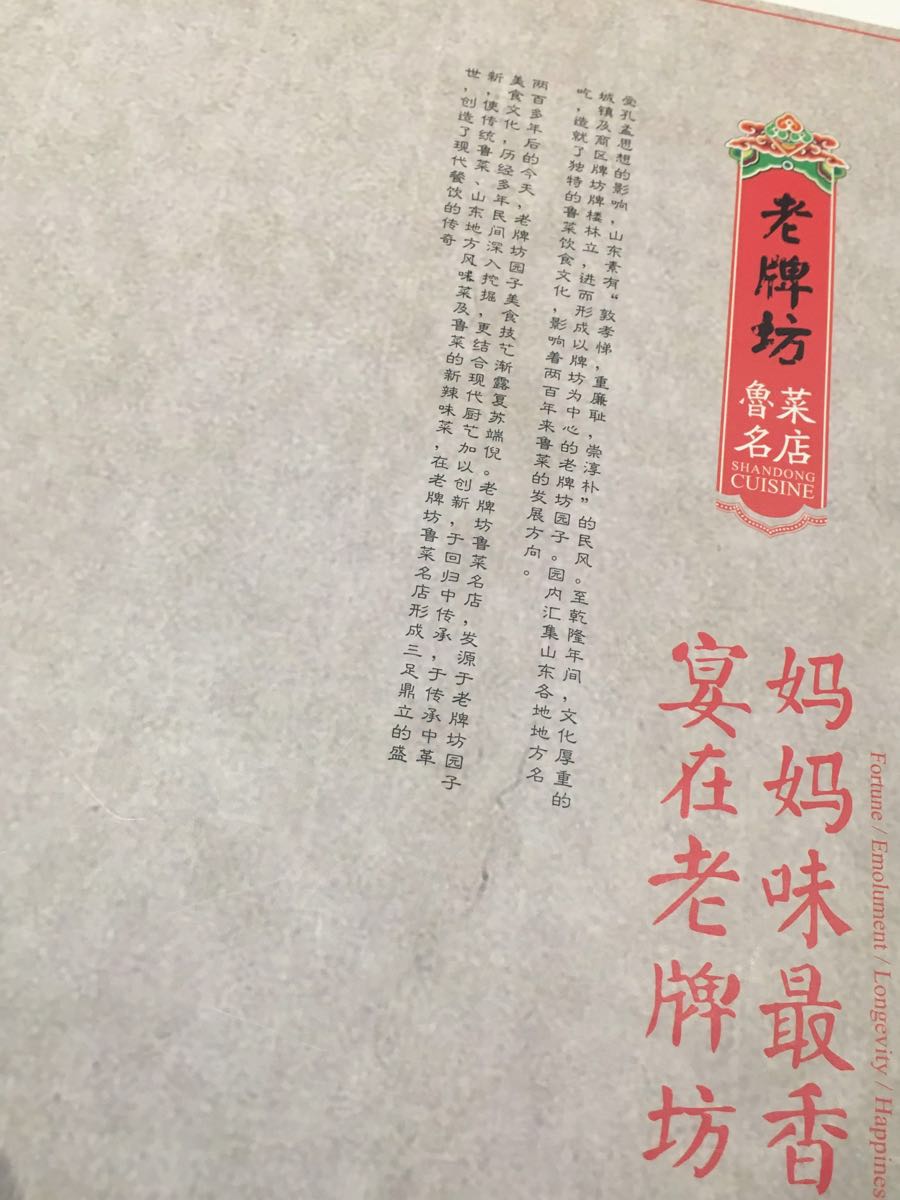 老牌坊
魯菜
名店
SHANDONG
CUISINE
妈妈味最香
宴在老牌坊
Fortune / Emolument / Longevity / Happines
受孔孟思想的影响，山东素有“敦孝悌，重廉耻，崇淳朴”的民风。至乾隆年间，文化厚重的
城镇及商区牌坊牌楼林立，进而形成以牌坊为中心的老牌坊园子。园内汇集山东各地地方名
吃，造就了独特的鲁菜饮食文化，影响着两百年来鲁菜的发展方向。
两百多年后的今天，老牌坊园子美食技艺渐露复苏端倪。老牌坊鲁菜名店，发源于老牌坊园子
美食文化，历经多年民间深入挖掘，更结合现代厨艺加以创新，于回归中传承，于传承中革
新，使传统鲁菜、山东地方风味菜及鲁菜的新辣味菜，在老牌坊鲁菜名店形成三足鼎立的盛
世，创造了现代餐饮的传奇